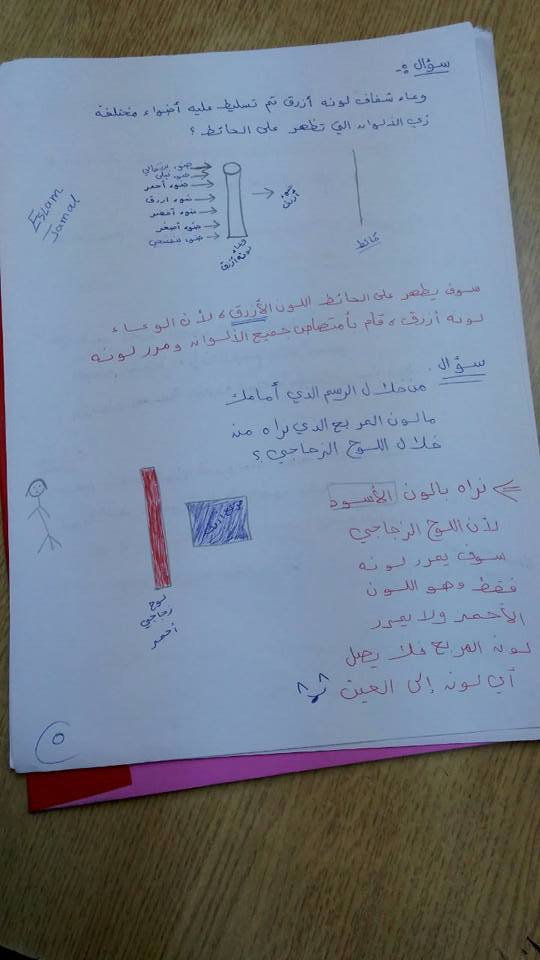 سؤال :-
وعاء شفاف لونه أزرق تم تسليط عليه أضواء مختلفة
زي الألوان التي تظهر على الحائط ؟
ضوء برتقالي
ضوء نيلي
ضوء أحمر
ضوء أزرق
ضوء أخضر
ضوء أصفر
ضوء بنفسجي
وعاء
لونه أزرق
ضوء
أزرق
حائط
Eslam
Jamal
سوف يظهر على الحائط اللون الأزرق ، لأن الوعاء
لونه أزرق ، قام بأمتصاص جميع الألوان ومرر لونه
سؤال .
من خلال الرسم الذي أمامك
ما لون المربع الذي نراه من
خلال اللوح الزجاجي ؟
نراه بالون الأسود
لأن اللوح الزجاجي
سوف يمرر لونه
فقط وهو اللون
الأحمر ولا يمرر
لون المربع فلا يصل
أي لون إلى العين
لوح
زجاجي
أحمر
٥